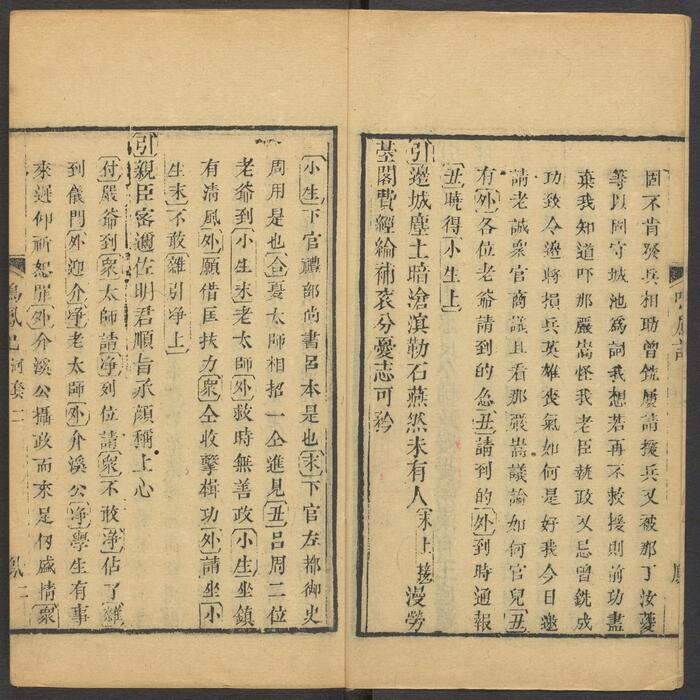 固不肯發兵相助曾銑屢請援兵又被那丁汝夔
等以固守城池爲詞我想若再不救援則前功盡
棄我知道吓那嚴嵩怪我老臣執政又忌曾銑成
功致令邊將損兵英雄喪氣如何是好我今日邀
請老誠衆官商議且看那嚴嵩議論如何官兒丑
有外各位老爺請到的急丑請到的外到時通報
丑曉得小生上
引邊城塵土暗滄溟勒石燕然未有人末上接漫勞
臺閣費經綸補袞分憂志可矜
小生下官禮部尚書呂本是也末下官左都御史
周用是也合夏太師相招一仝進見丑呂周二位
老爺到小生末老太師外救時無善政小生坐鎮
有清風外願借匡扶力衆仝收擊楫功外請坐小
生末不敢雜引净上
引親臣密邇佐明君順旨承顔稱上心
付嚴爺到衆太師請净列位請衆不敢净佔了雜
到儀門外迎介净老太師外介溪公净學生有事
來遲仰祈恕罪外介溪公攝政而來是仭感情衆
鳴鳳記 河套 二
鳳 二